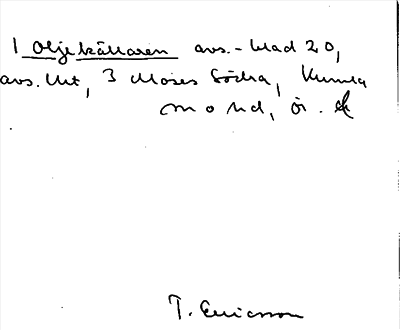 1 Oljekällaren avs.-blad 20,
avs. lit, 3 Moses Södra, Kumla
sn o hd, ör.
T. Ericsson